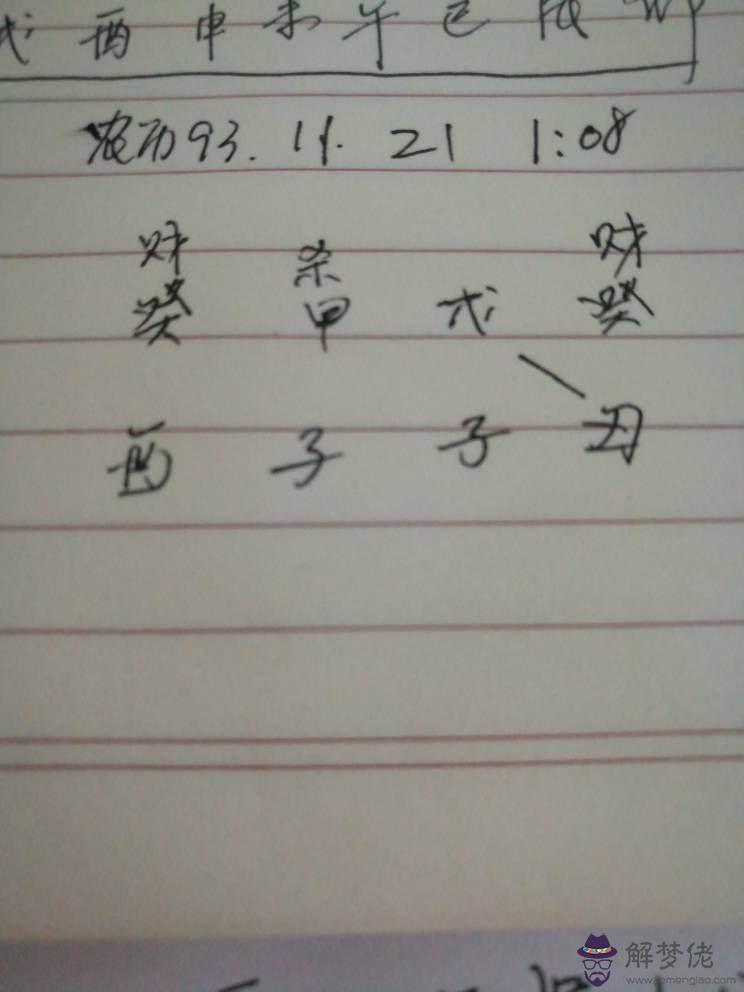 戌酉申未午巳辰卯
农历93.11.21 1:08
财 杀 财
癸 甲 戊 癸
酉 子 子 丑
解梦佬
www.jiemenglao.com